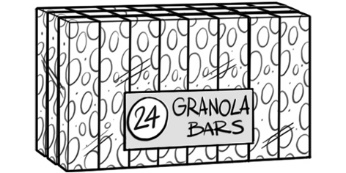 24 GRANOLA
BARS